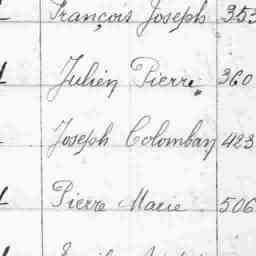 François Joseph 353
Julien Pierre 360
Joseph Colomban 423
Pierre Marie 506